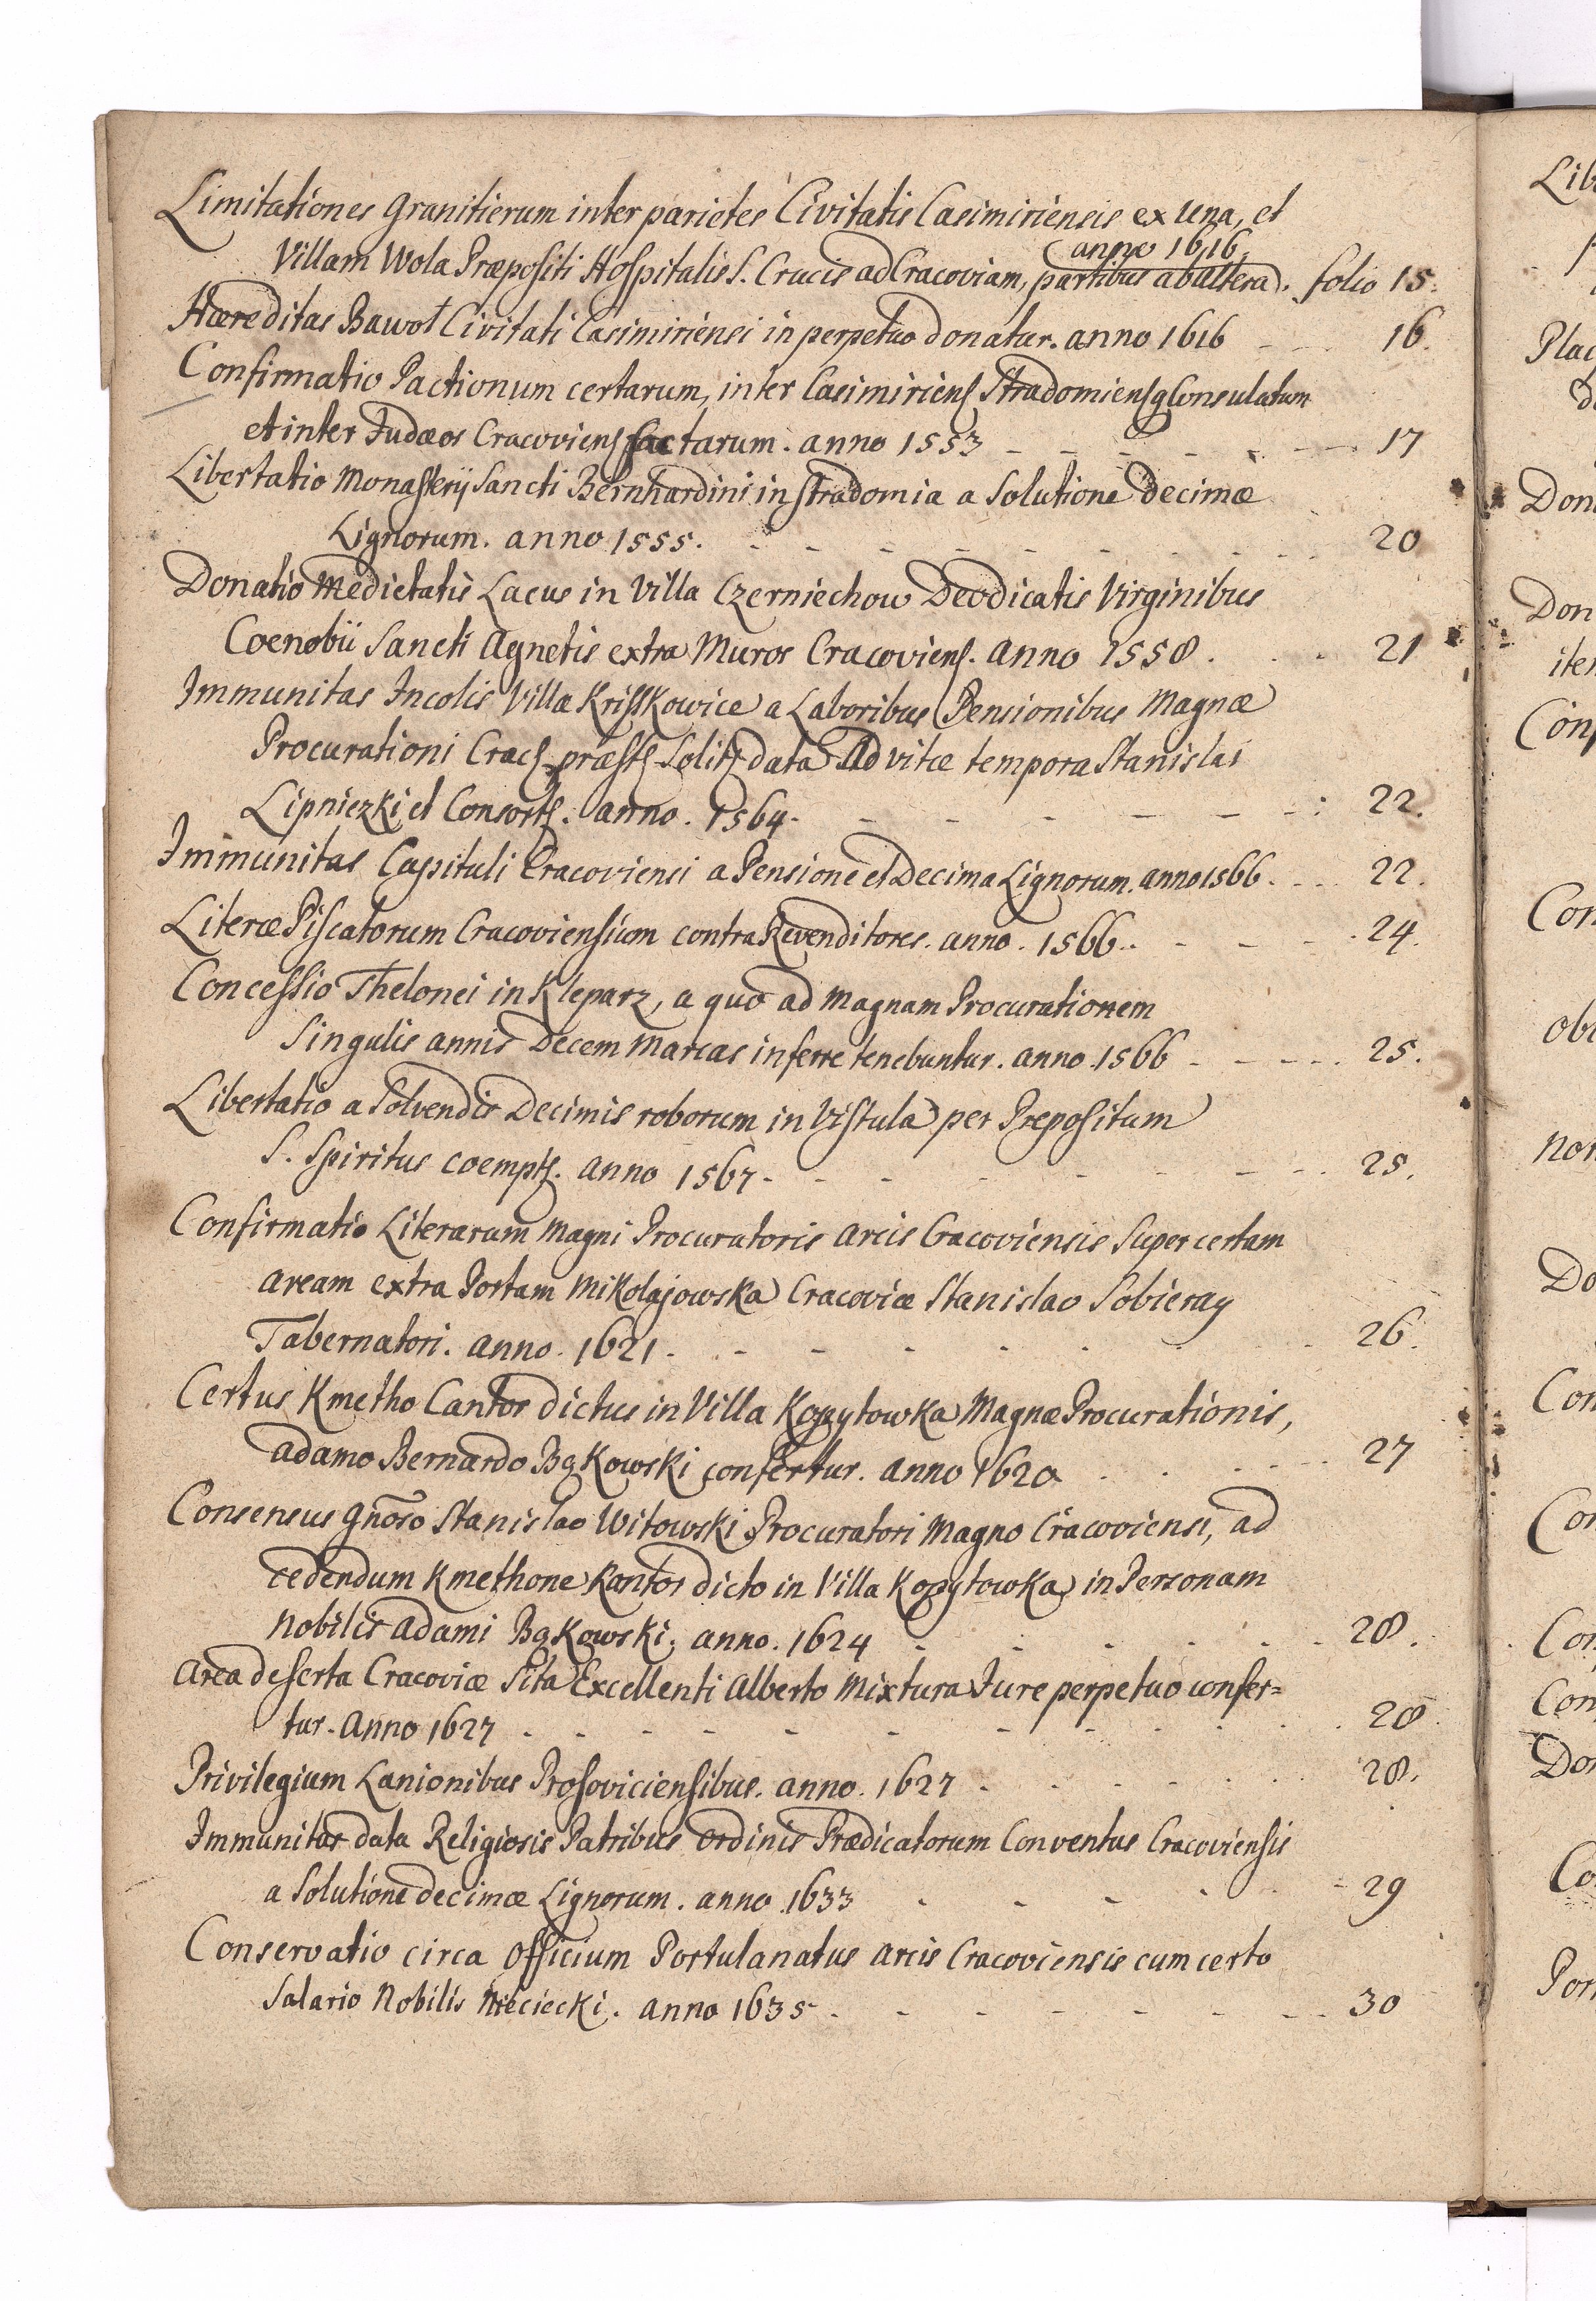 Limitationes Granitierum inter parietes Civitatis Casimiriensis ex una, et
anno 1616
Villam Wola Præpositi Hospitalis S. Crucis ad Cracoviam, partibus ab altera. folio 15.
Hæreditas Bawoł Civitati Casimiriensi in perpetuo donatur. anno 1616 - - - 16.
Confirmatio Pactionum certarum, inter Casimiriens Stradomiensq Consulatum
et inter Judæos Cracoviens factarum. anno 1553 - - - - - - 17
Libertatio Monasterij Sancti Bernhardini in Stradomia a Solutione Decimæ
Lignorum. anno 1555. - - - - - - - 20
Donatio Medietatis Lacus in Villa Czerniechow Deodicatis Virginibus
Coenobii Sancti Agnetis extra Muros Cracoviens. Anno 1558. . . 21
Immunitas Incolis Villæ Krisskowice a Laboribus Pensionibus Magnæ
Procurationi Crac præst Solit data Ad vitæ tempora Stanislai
Lipniezki et Consort. anno. 1564. - - - - - - : 22.
Immunitas Capituli Cracoviensi a Pensione et Decima Lignorum. anno 1566. - - - 22.
Literæ Piscatorum Cracoviensium contra Revenditores. anno. 1566. - - - - 24.
Concessio Thelonei in Kleparz, a quo ad Magnam Procurationem
Singulis annis Decem Marcas inferre tenebuntur. anno. 1566 - - - - - 25.
Libertatio a Solvendis Decimis roborum in Vistula per Prepositum
S. Spiritus coempt. anno 1567 - - - - - - - 25.
Confirmatio Literarum Magni Procuratoris Arcis Cracoviensis Super certam
Aream extra Portam Mikolajowska Cracoviæ Stanislao Sobieray
Tabernatori. anno. 1621. - - - - - - 26.
Certus Kmetho Cantor dictus in Villa Kopytowka Magnæ Procurationis,
Adamo Bernardo Bąkowski confertur. anno 1620 . . . - - - 27
Consensus Gnoso Stanislao Witowski Procuratori Magno Cracoviensi, ad
cedendum Kmethone Kantor dicto in Villa Kopytowka in Personam
Nobilis Adami Bąkowski. anno. 1624 - - - - - - 28.
Area deserta Cracoviæ Sita Excellenti Alberto Mixtura Jure perpetuo confer=
tur. Anno 1627 - - - - - - - - - 28
Privilegium Lanionibus Prosoviciensibus. anno. 1627 - . - - - . . 28.
Immunitas data Religiosis Patribus Ordinis Prædicatorum Conventus Cracoviensis
a Solutione decimæ Lignorum. anno. 1633 - - - - - - 29
Conservatio circa Officium Portulanatus Arcis Cracoviensis cum certo
Salario Nobilis Nieciecki. anno 1635 - - - - - - - 30
Lib
Plac
Don
Don
iter
Conf
Con
obl
Non
Do
Con
Con
Con
Con
Don
Co
Por